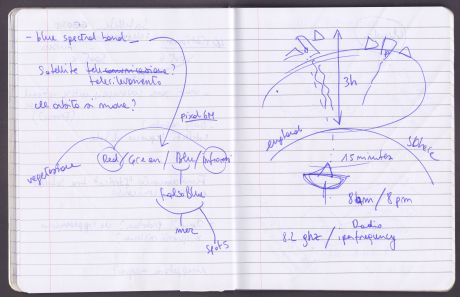 - blue spectral band -
Satellite telecomunicazione?
telerilevamento
che orbita si muove?
pixel 6M
vegetazione
Red / Green / Blue / Infrared
mer
spots
3h
england
15 minutes
8am / 8pm
8.2 ghz / Radio
frequency